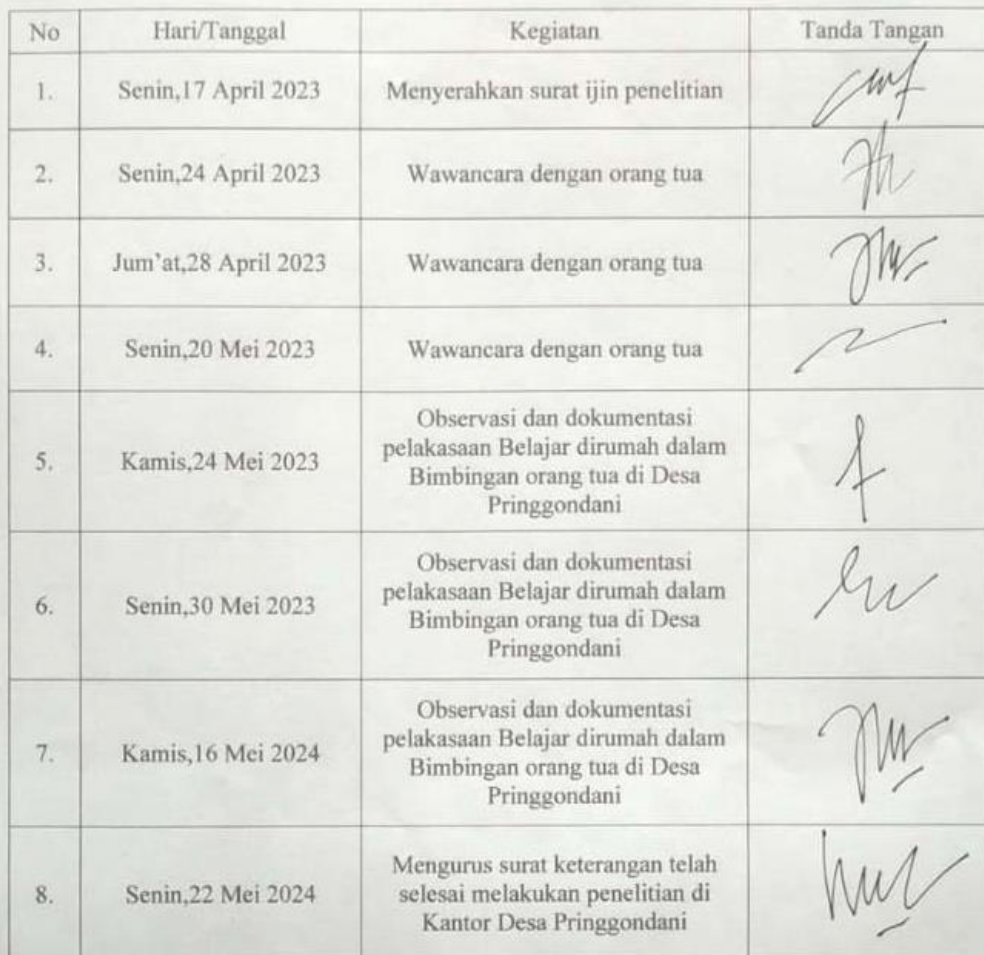 No Hari/Tanggal Kegiatan Tanda Tangan
1. Senin,17 April 2023 Menyerahkan surat ijin penelitian
2. Senin,24 April 2023 Wawancara dengan orang tua
3. Jum'at,28 April 2023 Wawancara dengan orang tua
4. Senin,20 Mei 2023 Wawancara dengan orang tua
5. Kamis,24 Mei 2023 Observasi dan dokumentasi
pelakasaan Belajar dirumah dalam
Bimbingan orang tua di Desa
Pringgondani
6. Senin,30 Mei 2023 Observasi dan dokumentasi
pelakasaan Belajar dirumah dalam
Bimbingan orang tua di Desa
Pringgondani
7. Kamis,16 Mei 2024 Observasi dan dokumentasi
pelakasaan Belajar dirumah dalam
Bimbingan orang tua di Desa
Pringgondani
8. Senin,22 Mei 2024 Mengurus surat keterangan telah
selesai melakukan penelitian di
Kantor Desa Pringgondani